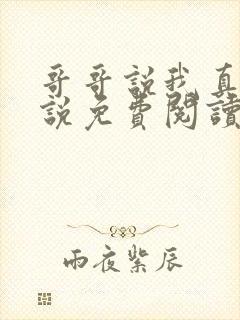 哥哥說我真
說免費閱讀
雨夜紫辰